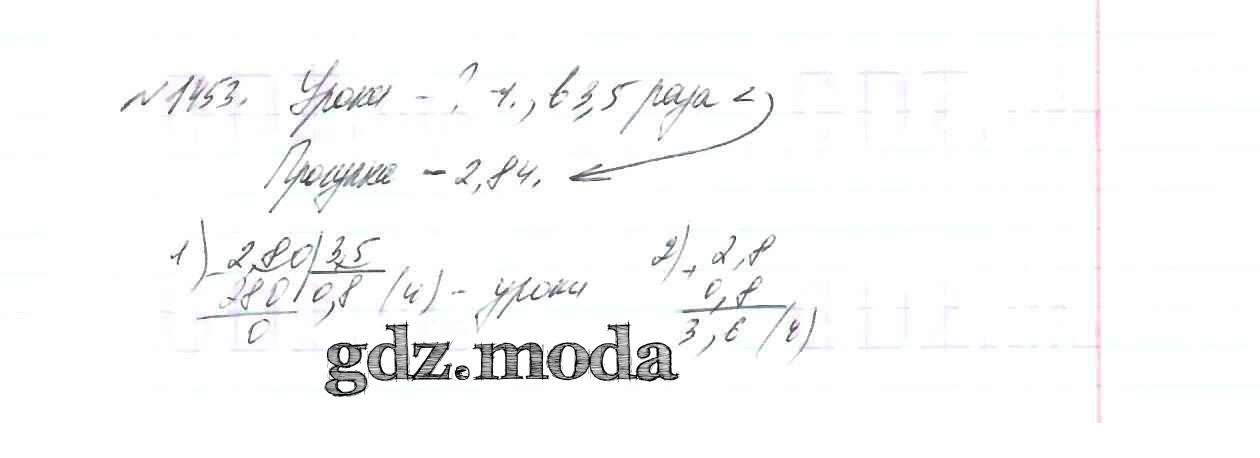 №1453. Уроки - ? ч., в 3,5 раза <
Прогулка - 2,8 ч.
1) 2,80 | 3,5 2) + 2,8
280 0,8 (ч) - уроки 0,8
0 3,6 (ч)
gdz.moda